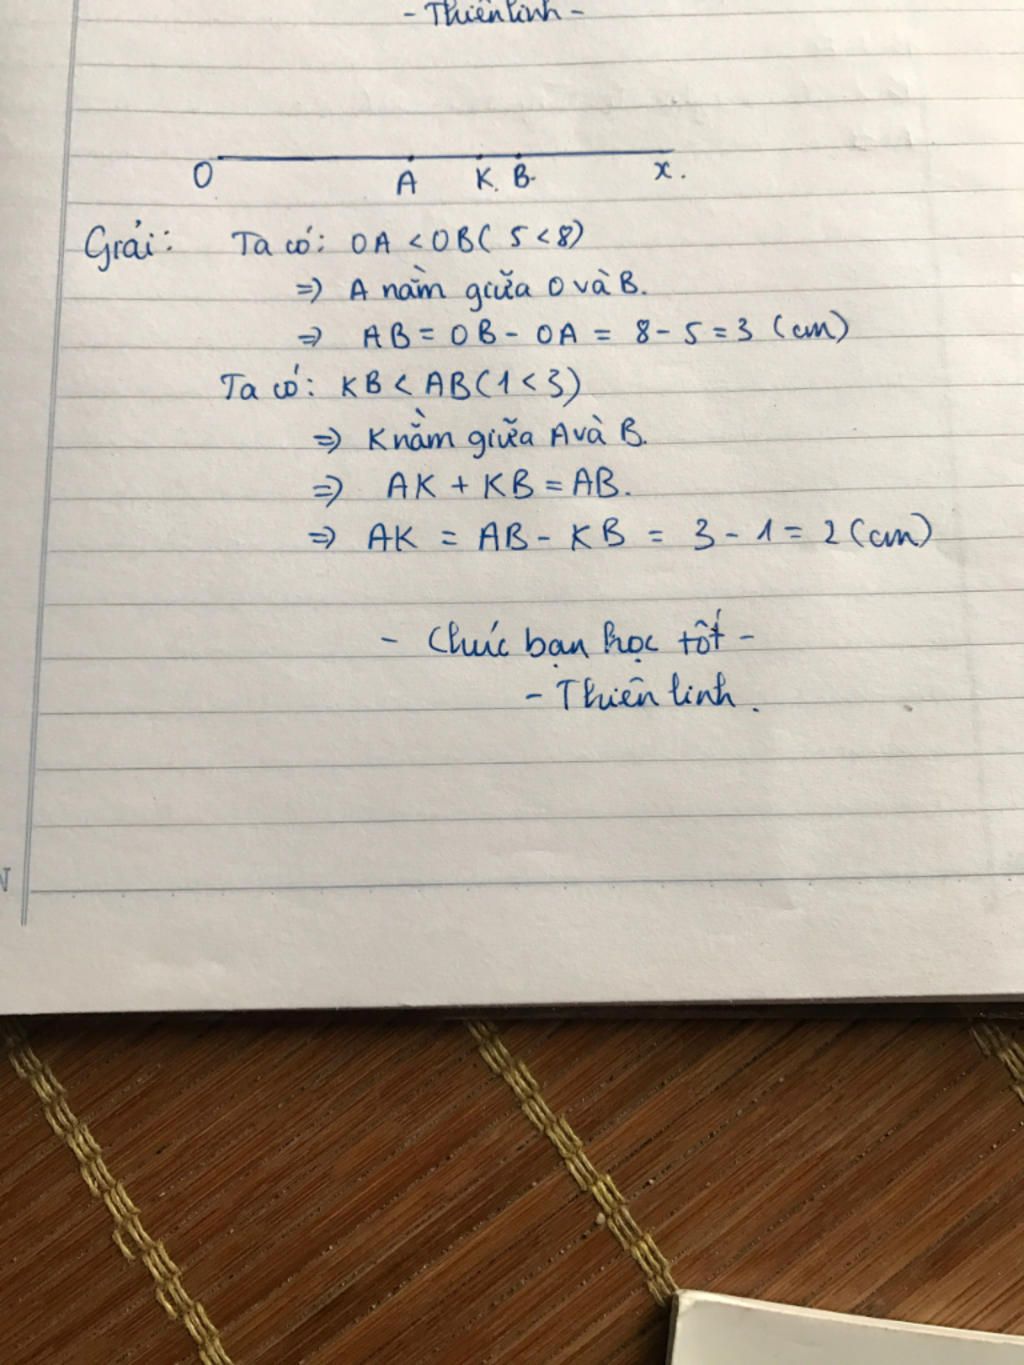 - Thiên linh -
O A K. B. x.
Giải: Ta có: OA < OB ( 5 < 8)
=> A nằm giữa O và B.
=> AB = OB - OA = 8 - 5 = 3 (cm)
Ta có: KB < AB (1 < 3)
=> K nằm giữa A và B.
=> AK + KB = AB.
=> AK = AB - KB = 3 - 1 = 2 (cm)
- Chúc bạn học tốt -
- Thiên linh.
N